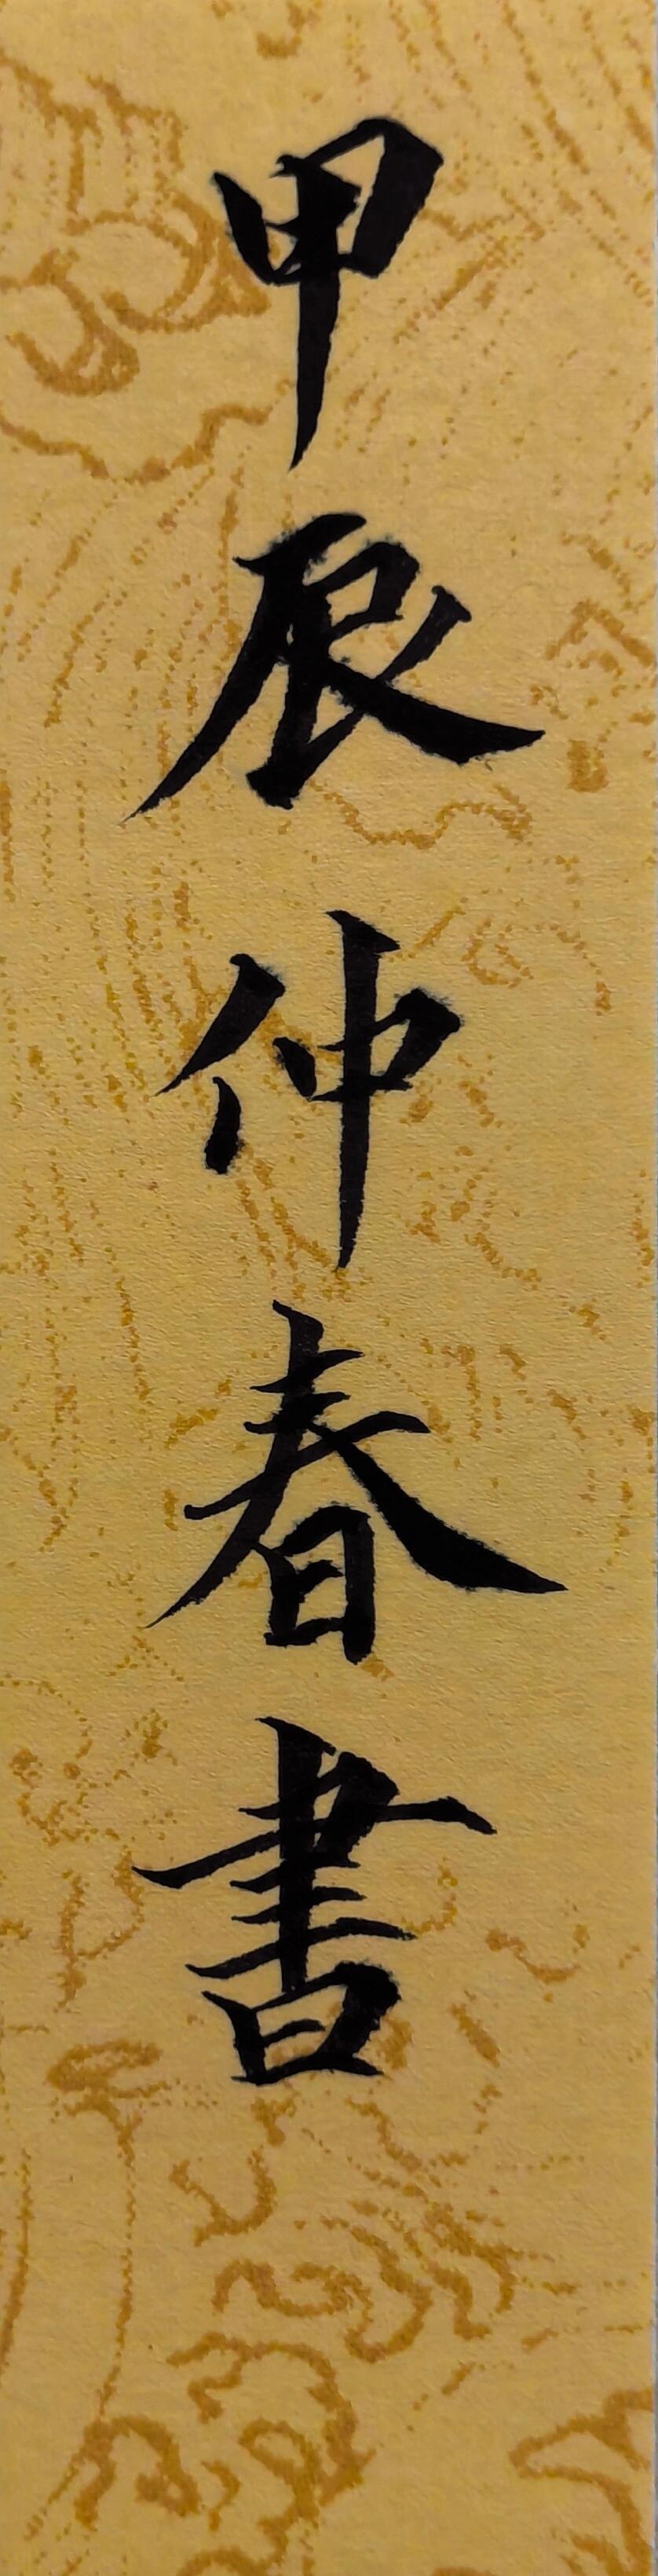 甲辰仲春書